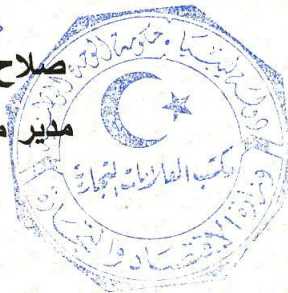 صلاح
مدير م
دولة ليبيا - حكومة الوحدة الوطنية
مكتب العلامات التجارية
وزارة الاقتصاد والتجارة